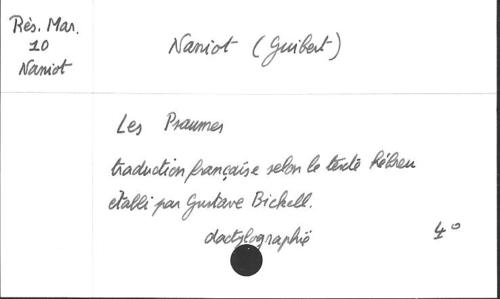 Rés. Mar.
10
Naniot
Naniot (Guibert)
Les Psaumes
traduction française selon le texte hébreu
établi par Gustave Bickell.
dactylographié
4°